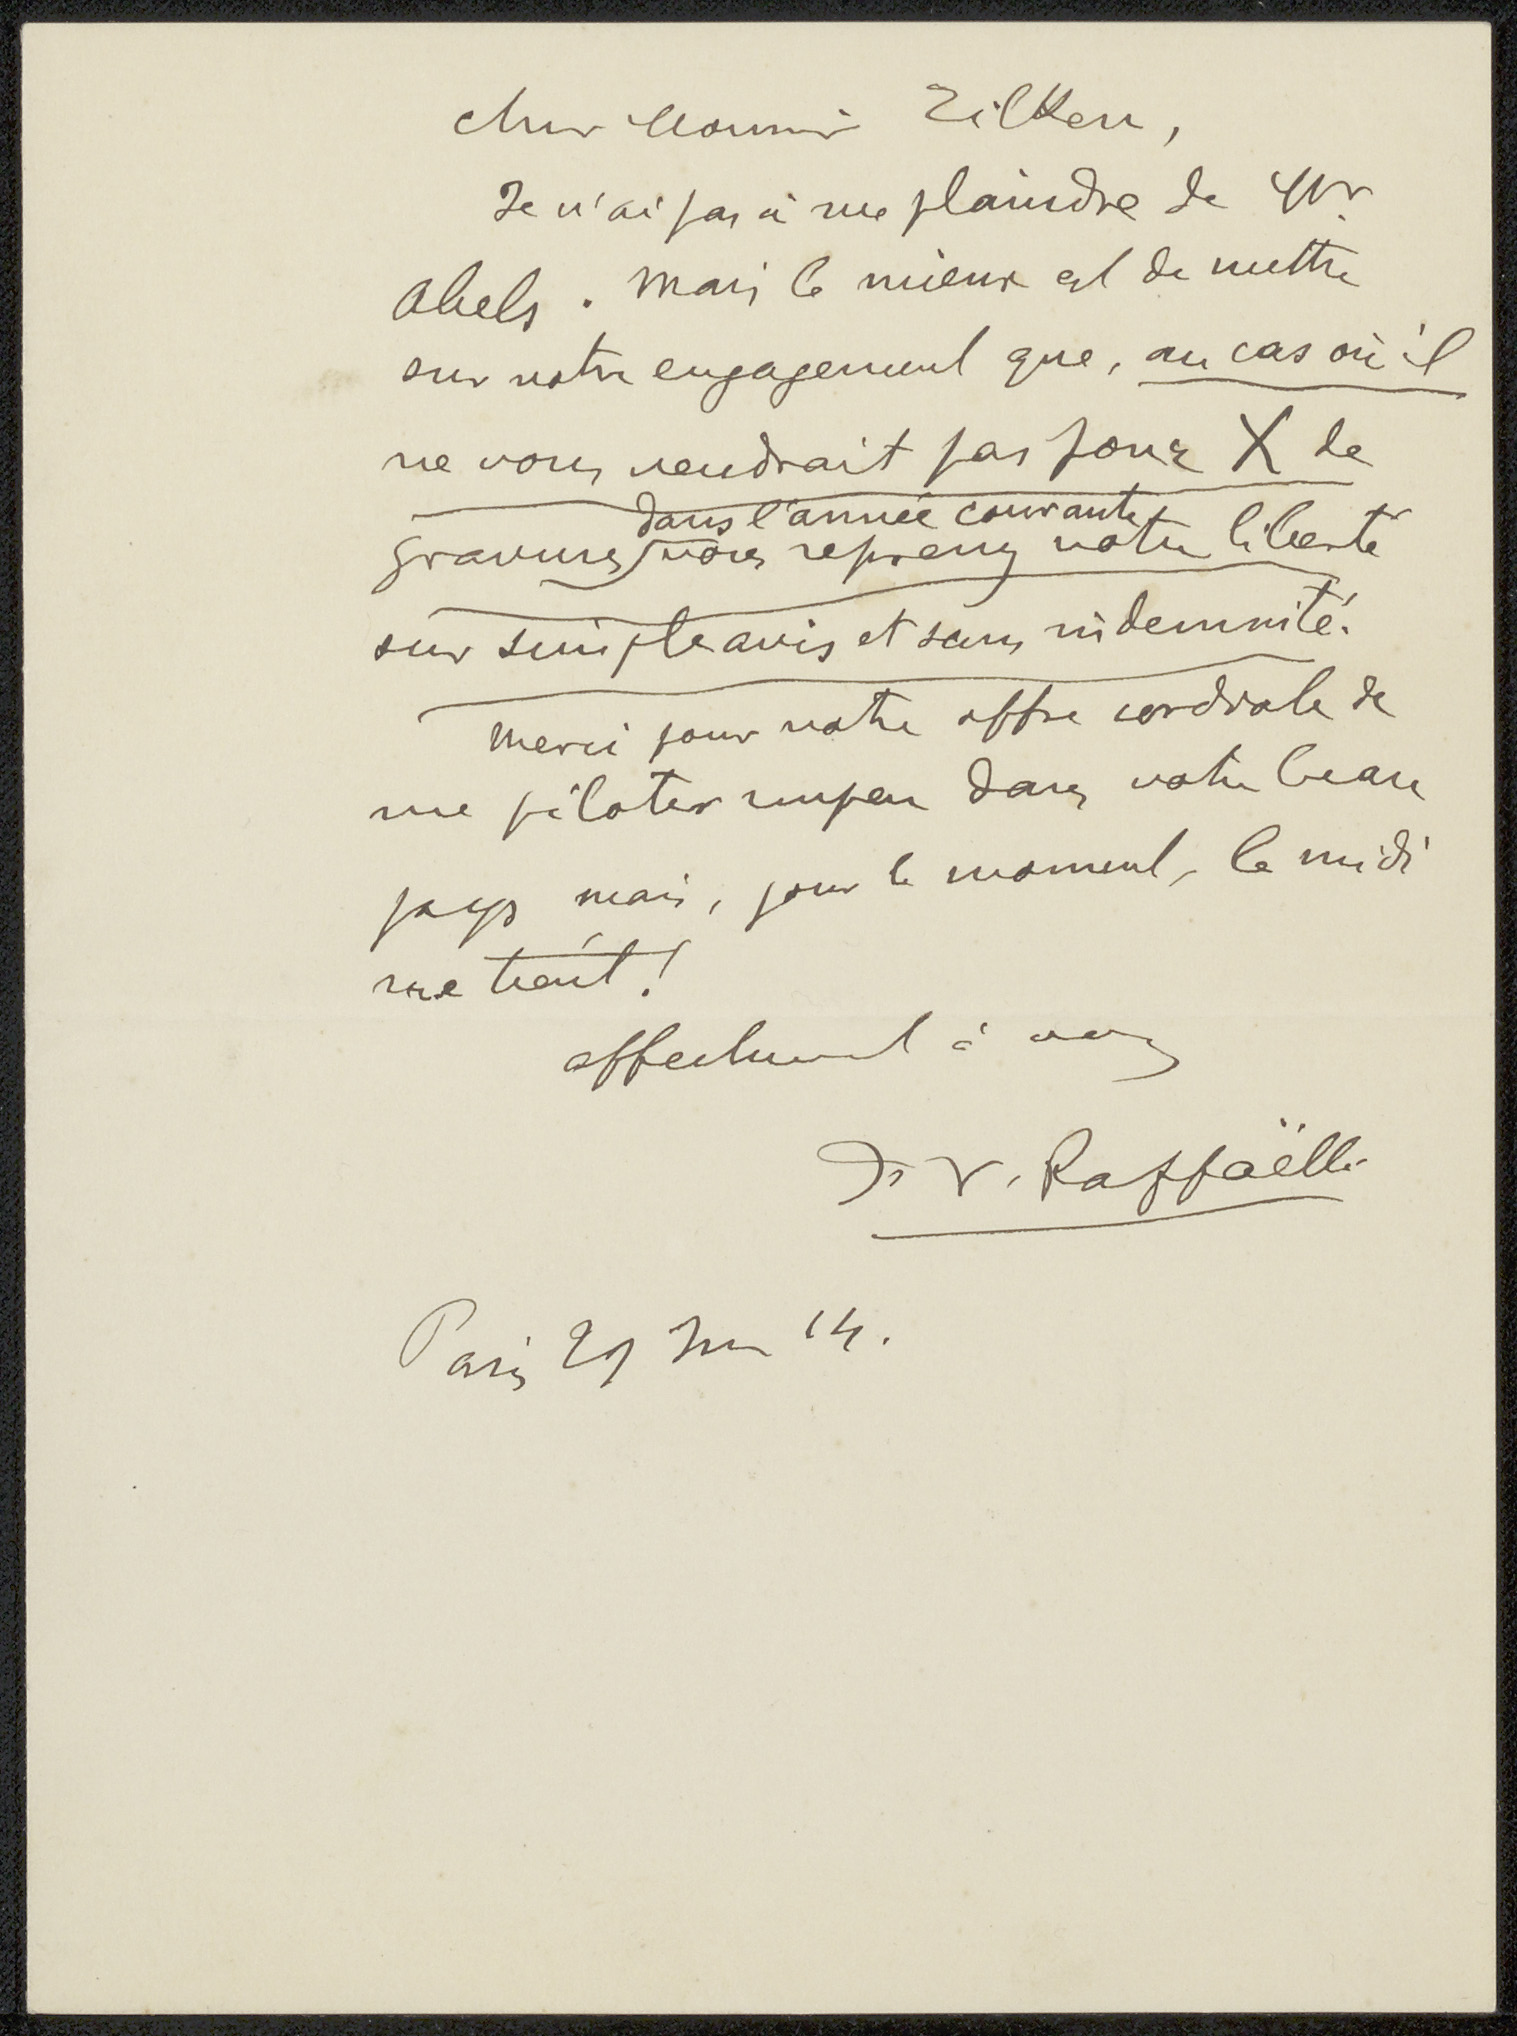 Cher Monsieur Zilken,
Je n'ai pas à me plaindre de Mr.
Abels. Mais le mieux est de mettre
sur votre engagement que, au cas où il
ne vous vendrait pas pour X de
dans l'année courante
gravures, vous reprenez votre liberté
sur simple avis et sans indemnité.
Merci pour votre offre cordiale de
me piloter un peu dans votre beau
pays mais, pour le moment, le midi
me tient!
affectueusement à vous
J. F. Raffaëlli
Paris 29 14.